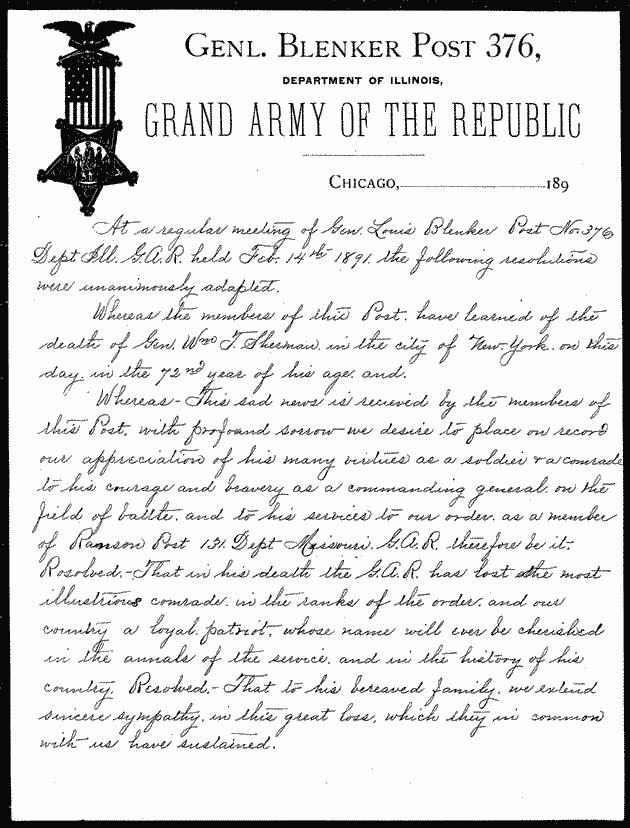 GENL. BLENKER POST 376,
DEPARTMENT OF ILLINOIS,
GRAND ARMY OF THE REPUBLIC
CHICAGO, 189
At a regular meeting of Gen. Louis Blenker Post No. 376
Dept Ill. G.A.R. held Feb. 14th 1891. the following resolutions
were unanimously adapted.
Whereas the members of this Post. have learned of the
death of Gen. Wm T. Sherman. in the city of New-York. on this
day. in the 72nd year of his age. and.
Whereas - This sad news is recieved by the members of
this Post. with profound sorrow - we desire to place on record
our appreciation of his many virtues as a soldier & a comrade
to his courage and bravery as a commanding general. on the
field of battle. and to his services to our order. as a member
of Ramson Post 131. Dept Missouri. G.A.R. therefore be it.
Rosolved. - That in his death the G.A.R. has lost the most
illustrious comrade. in the ranks of the order. and our
country a loyal patriot. whose name will ever be cherished
in the annals of the service. and in the history of his
country. Resolved. - That to his bereaved family. we extend
sincere sympathy. in this great loss. which they in common
with us have sustained.